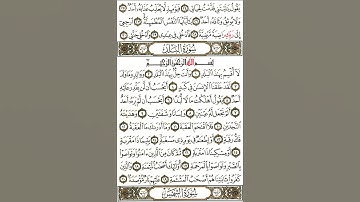 يَقُولُ يَٰلَيْتَنِي قَدَّمْتُ لِحَيَاتِي ۝ فَيَوْمَئِذٍ لَّا يُعَذِّبُ عَذَابَهُۥٓ أَحَدٌ ۝
وَلَا يُوثِقُ وَثَاقَهُۥٓ أَحَدٌ ۝ يَٰٓأَيَّتُهَا ٱلنَّفْسُ ٱلْمُطْمَئِنَّةُ ۝ ٱرْجِعِيٓ
إِلَىٰ رَبِّكِ رَاضِيَةً مَّرْضِيَّةً ۝ فَٱدْخُلِي فِي عِبَٰدِي ۝ وَٱدْخُلِي جَنَّتِي ۝
سُورَةُ البَلَدِ
بِسْمِ ٱللَّهِ ٱلرَّحْمَٰنِ ٱلرَّحِيمِ
لَآ أُقْسِمُ بِهَٰذَا ٱلْبَلَدِ ۝ وَأَنتَ حِلٌّۢ بِهَٰذَا ٱلْبَلَدِ ۝ وَوَالِدٍ وَمَا وَلَدَ ۝
لَقَدْ خَلَقْنَا ٱلْإِنسَٰنَ فِي كَبَدٍ ۝ أَيَحْسَبُ أَن لَّن يَقْدِرَ عَلَيْهِ أَحَدٌ ۝
يَقُولُ أَهْلَكْتُ مَالًا لُّبَدًا ۝ أَيَحْسَبُ أَن لَّمْ يَرَهُۥٓ أَحَدٌ ۝
أَلَمْ نَجْعَل لَّهُۥ عَيْنَيْنِ ۝ وَلِسَانًا وَشَفَتَيْنِ ۝ وَهَدَيْنَٰهُ
ٱلنَّجْدَيْنِ ۝ فَلَا ٱقْتَحَمَ ٱلْعَقَبَةَ ۝ وَمَآ أَدْرَىٰكَ مَا ٱلْعَقَبَةُ ۝
فَكُّ رَقَبَةٍ ۝ أَوْ إِطْعَٰمٌ فِي يَوْمٍ ذِي مَسْغَبَةٍ ۝ يَتِيمًا ذَا مَقْرَبَةٍ ۝
أَوْ مِسْكِينًا ذَا مَتْرَبَةٍ ۝ ثُمَّ كَانَ مِنَ ٱلَّذِينَ ءَامَنُوا۟ وَتَوَاصَوْا۟
بِٱلصَّبْرِ وَتَوَاصَوْا۟ بِٱلْمَرْحَمَةِ ۝ أُو۟لَٰٓئِكَ أَصْحَٰبُ ٱلْمَيْمَنَةِ ۝ وَٱلَّذِينَ
كَفَرُوا۟ بِـَٔايَٰتِنَا هُمْ أَصْحَٰبُ ٱلْمَشْـَٔمَةِ ۝ عَلَيْهِمْ نَارٌ مُّؤْصَدَةٌۢ ۝
سُورَةُ الشَّمْسِ